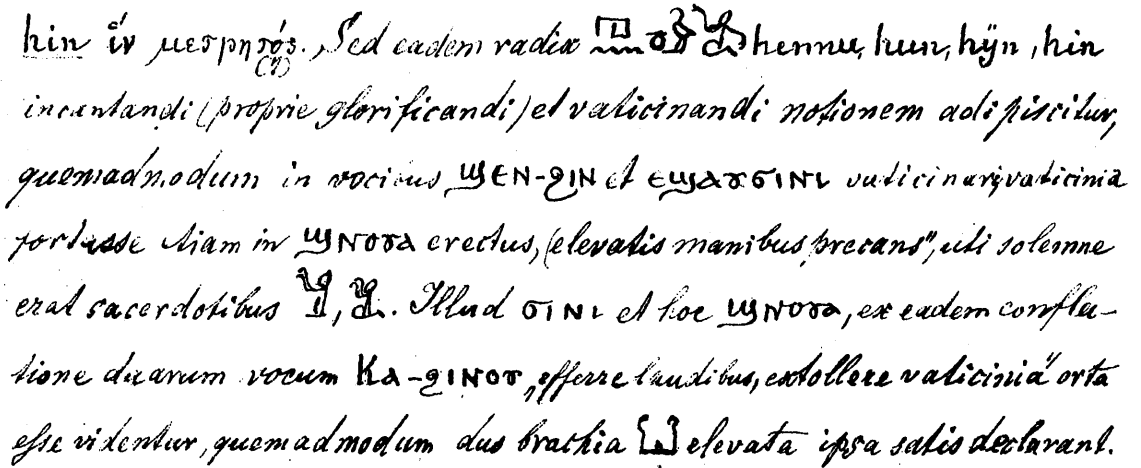 hin εἵν μετρητός. Sed eadem radix hennu, hun, hÿn, hin
incantandi (proprie glorificandi) et vaticinandi notionem adipiscitur,
quemadmodum in vocibus ϣⲉⲛ-ϩⲓⲛ et ⲉϣⲁⲩϭⲓⲛⲓ vaticinari, vaticinia
fortasse etiam in ϣⲛⲟⲩⲁ erectus, „elevatis manibus precans", uti solemne
erat sacerdotibus , . Illud ϭⲓⲛⲓ et hoc ϣⲛⲟⲩⲁ, ex eadem confla-
tione duarum vocum ⲕⲁ-ϩⲓⲛⲟⲩ „efferre laudibus, extollere vaticinia" orta
esse videntur, quemadmodum duo brachia elevata ipsa satis declarant.